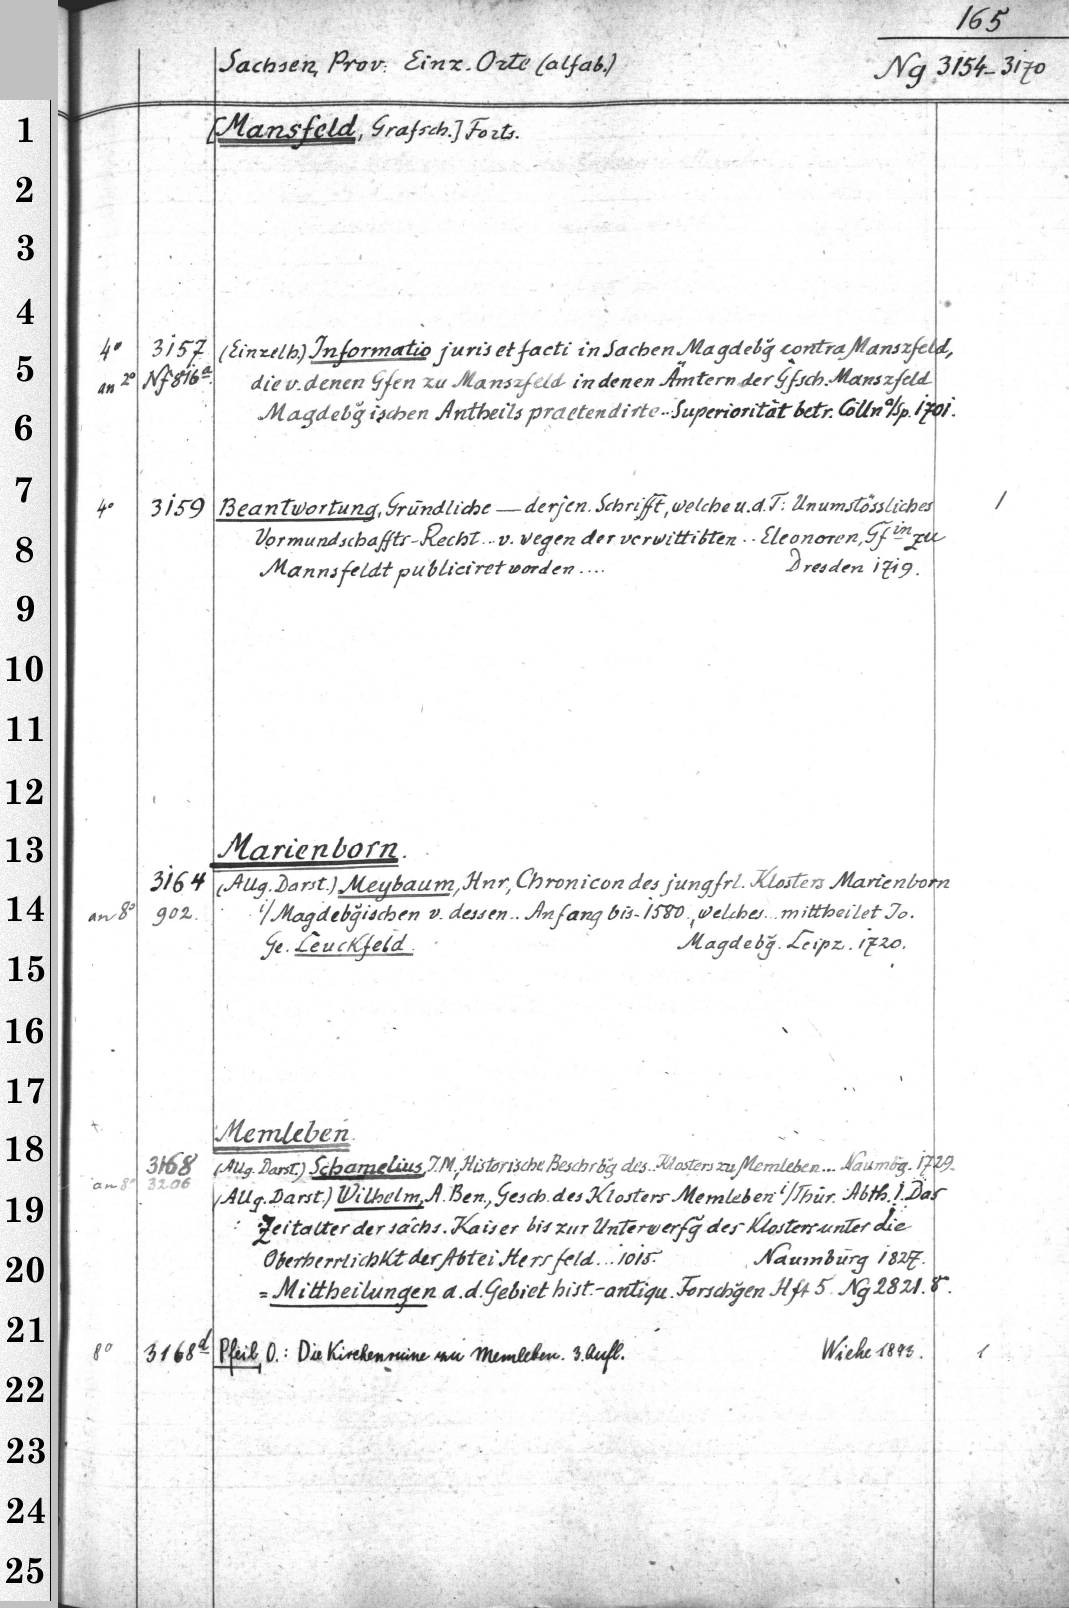 165
Sachsen, Prov. Einz. Orte (alfab.) Ng 3154-3170
1 [Mansfeld, Grafsch.] Forts.
2
3
4
4° 3157 (Einzelh.) Informatio juris et facti in Sachen Magdebg̃ contra Manszfeld,
5 an 2° Nf 816a die v. denen Gfen zu Manszfeld in denen Ämtern der Gfsch. Manszfeld
6 Magdebg̃ischen Antheils praetendirte .. Superiorität betr. Cölln a/Sp. 1701.
7 4° 3159 Beantwortung, Gründliche — derjen. Schrifft, welche u. d. T: Unumstössliches 1
8 Vormundschaffts-Recht .. v. wegen der verwittibten .. Eleonoren, Gfin zu
Mannsfeldt publiciret worden .... Dresden 1719.
9
10
11
12
13 Marienborn.
3164 (Allg. Darst.) Meybaum, Hnr, Chronicon des jungfrl. Klosters Marienborn
14 an 8° 902. i/Magdebg̃ischen v. dessen .. Anfang bis 1580., welches ... mittheilet Jo.
Ge. Leuckfeld. Magdebg̃. Leipz. 1720.
15
16
17
18 Memleben
3168 (Allg. Darst.) Schamelius, J. M., Historische Beschrbg̃ des .. Klosters zu Memleben ... Naumbg̃. 1729.
an 8° 3206
19 (Allg. Darst.) Wilhelm, A. Ben., Gesch. des Klosters Memleben i/Thür. Abth. 1. Das
Zeitalter der sächs. Kaiser bis zur Unterwerfg̃ des Klosters unter die
20 Oberherrlichkt der Abtei Hersfeld ... 1015. Naumburg 1827.
= Mittheilungen a. d. Gebiet hist.-antiqu. Forschg̃en Hft 5. Ng 2821. 8°.
21
8° 3168d Pfeil, O.: Die Kirchenruine zu Memleben. 3. Aufl. Wiehe 1893. 1
22
23
24
25